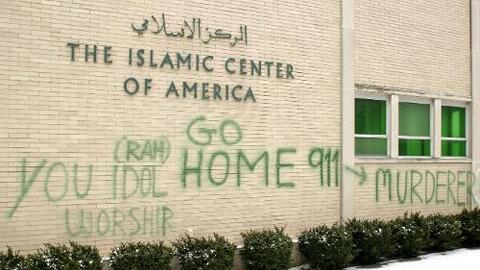 المركز الاسلامي
THE ISLAMIC CENTER
OF AMERICA
GO
HOME 911 → MURDERER
YOU IDOL
(RAH)
WORSHIP